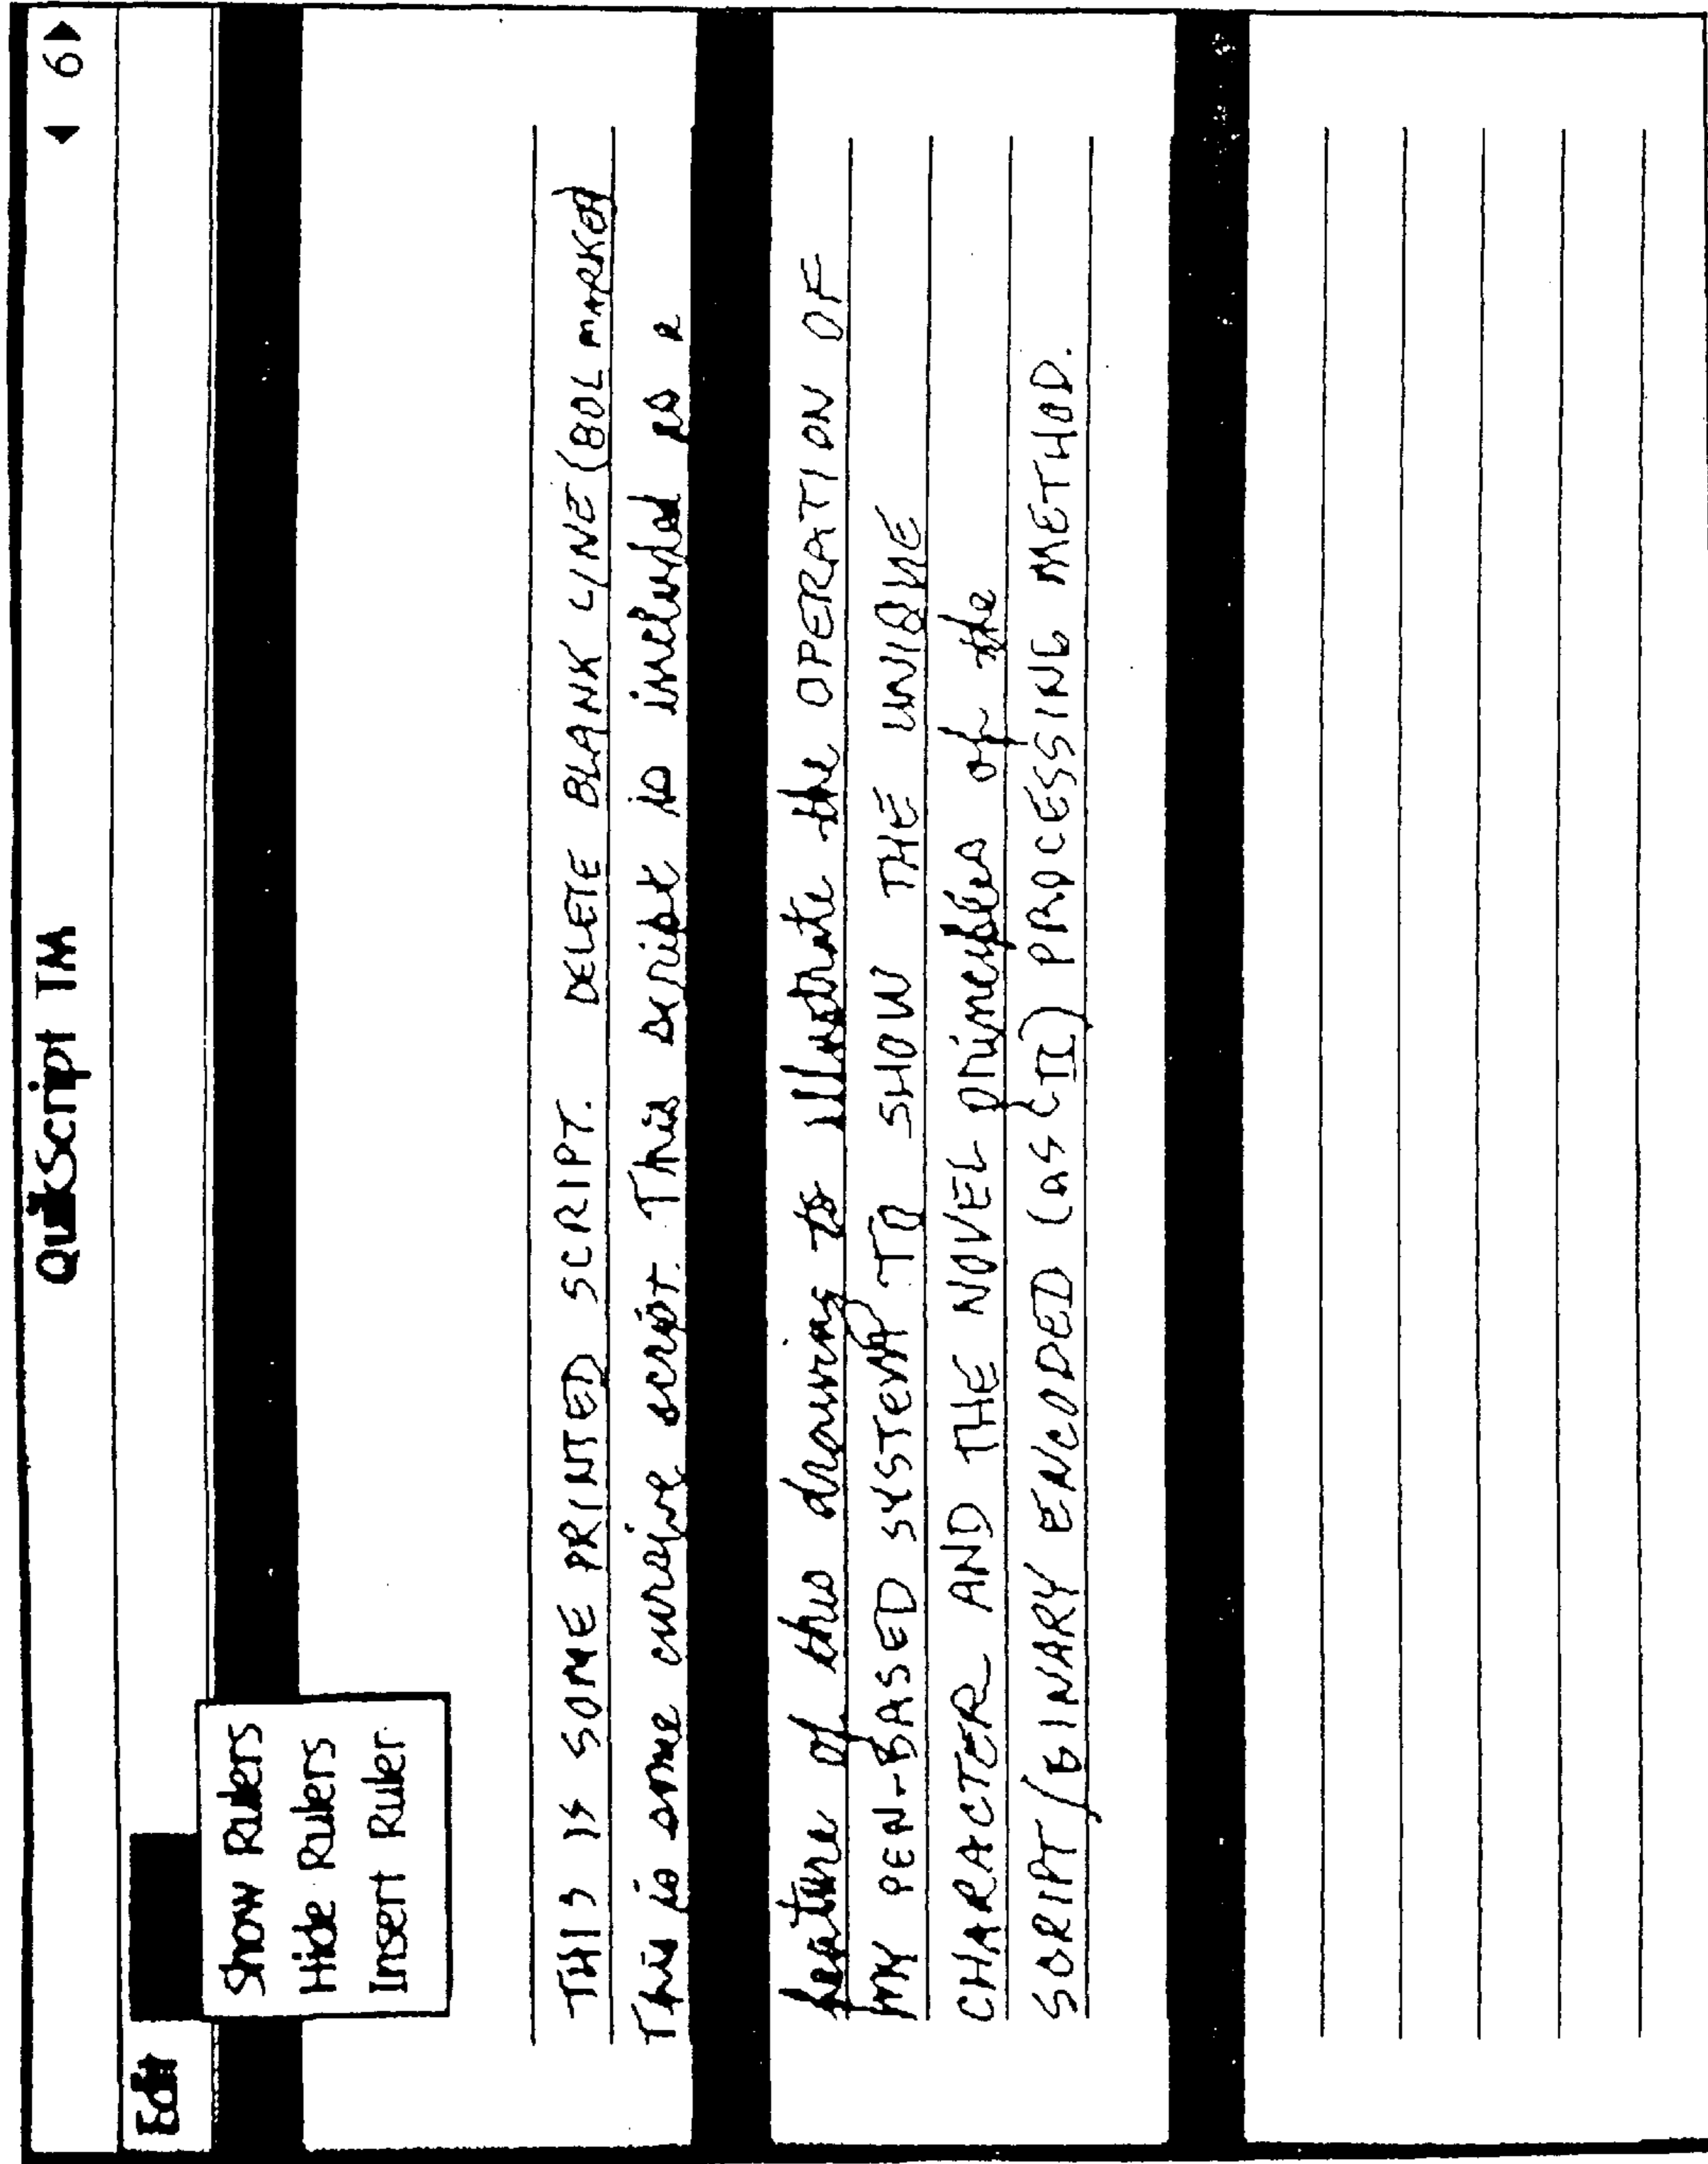 QuikScript TM
◀ 6▶
Edit
Show Rulers
Hide Rulers
Insert Ruler
THIS IS SOME PRINTED SCRIPT. DELETE BLANK LINE (BOL MARKED
This is some cursive script. This script is included as a
feature of this drawing to illustrate the OPERATION OF
MY PEN-BASED SYSTEM TO SHOW THE UNIQUE
CHARACTER AND THE NOVEL principles of the
SCRIPT/BINARY ENCODED (ASCII) PROCESSING METHOD.